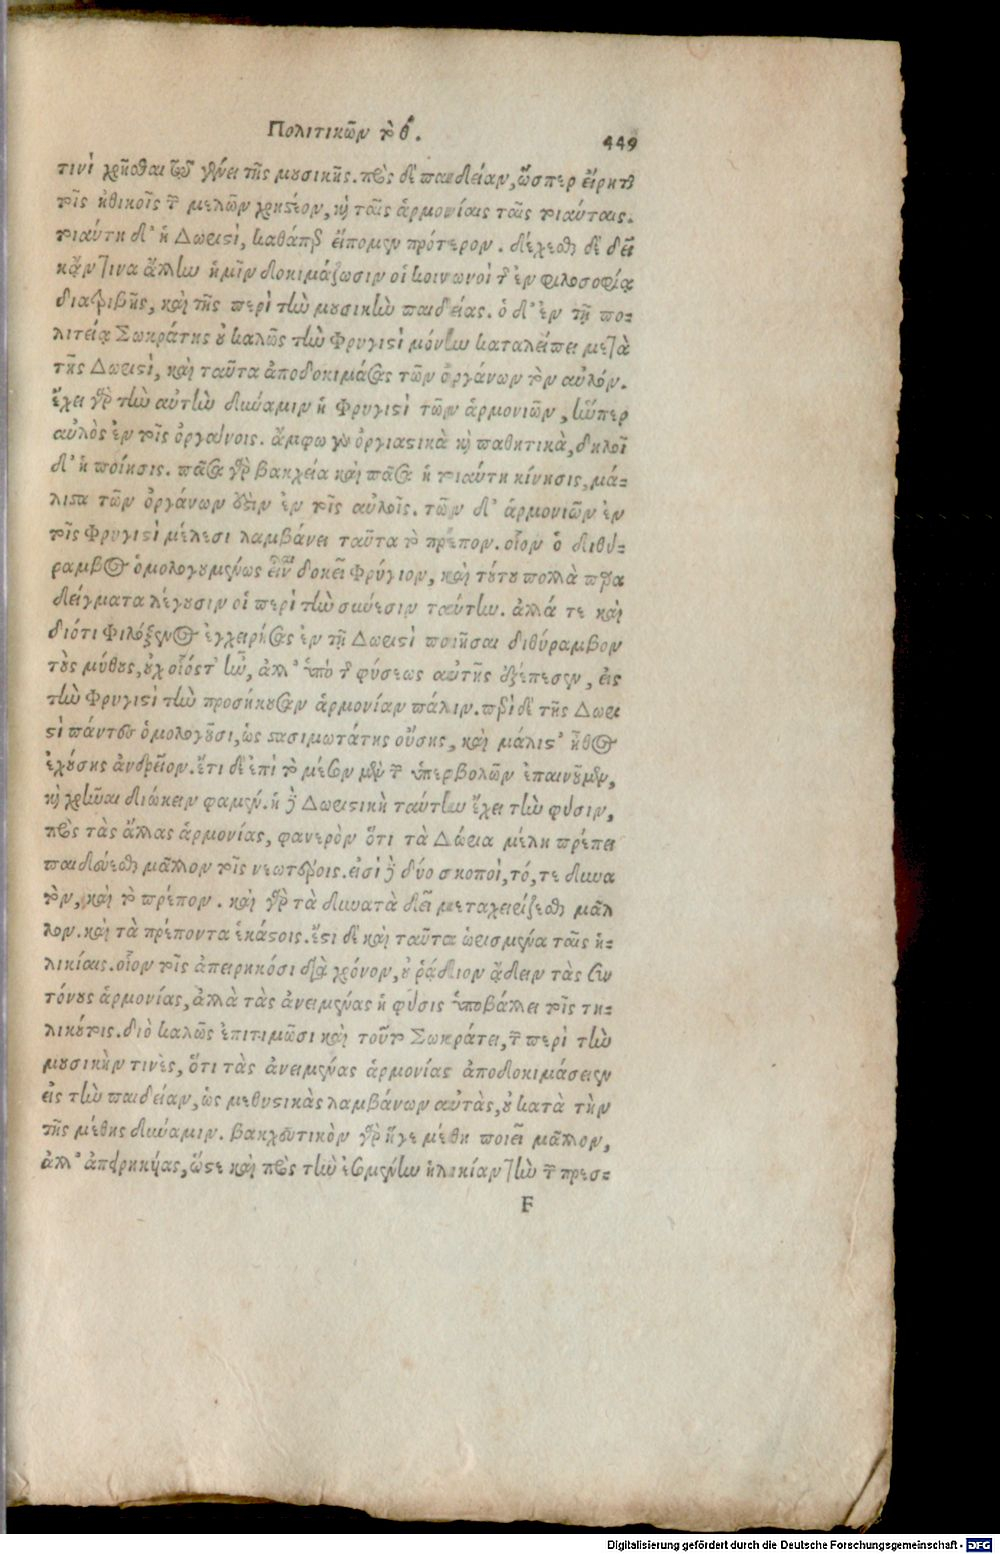 Πολιτικῶν τὸ θ΄. 449
τινὶ χρῆσθαι τῷ γένει τῆς μουσικῆς. πρὸς δὲ παιδείαν, ὥσπερ εἴρηται
τοῖς ἠθικοῖς τῶν μελῶν χρηστέον, καὶ ταῖς ἁρμονίαις ταῖς τοιαύταις.
τοιαύτη δ' ἡ Δωριστὶ, καθάπερ εἴπομεν πρότερον. δέχεσθαι δὲ δεῖ
κἄν τινα ἄλλην ἡμῖν δοκιμάζωσιν οἱ κοινωνοὶ τῆς ἐν φιλοσοφίᾳ
διατριβῆς, καὶ τῆς περὶ τὴν μουσικὴν παιδείας. ὁ δ' ἐν τῇ πο-
λιτείᾳ Σωκράτης οὐ καλῶς τὴν Φρυγιστὶ μόνην καταλείπει μετὰ
τῆς Δωριστὶ, καὶ ταῦτα ἀποδοκιμάσας τῶν ὀργάνων τὸν αὐλόν.
ἔχει γὰρ τὴν αὐτὴν δύναμιν ἡ Φρυγιστὶ τῶν ἁρμονιῶν, ἥνπερ
αὐλὸς ἐν τοῖς ὀργάνοις. ἄμφω γὰρ ὀργιαστικὰ καὶ παθητικὰ, δηλοῖ
δ' ἡ ποίησις. πᾶσα γὰρ βακχεία καὶ πᾶσα ἡ τοιαύτη κίνησις, μά-
λιστα τῶν ὀργάνων ἐστὶν ἐν τοῖς αὐλοῖς. τῶν δ' ἁρμονιῶν ἐν
τοῖς Φρυγιστὶ μέλεσι λαμβάνει ταῦτα τὸ πρέπον. οἷον ὁ διθύ-
ραμβος ὁμολογουμένως εἶναι δοκεῖ Φρύγιον, καὶ τούτου πολλὰ παρα
δείγματα λέγουσιν οἱ περὶ τὴν σύνεσιν ταύτην. ἄλλά τε καὶ
διότι Φιλόξενος ἐγχειρήσας ἐν τῇ Δωριστὶ ποιῆσαι διθύραμβον
τοὺς μύθους, οὐχ οἷόστ' ἦν, ἀλλ' ὑπὸ τῆς φύσεως αὐτῆς ἐξέπεσεν, εἰς
τὴν Φρυγιστὶ τὴν προσήκουσαν ἁρμονίαν πάλιν. περὶ δὲ τῆς Δωρι
στὶ πάντες ὁμολογοῦσι, ὡς στασιμωτάτης οὔσης, καὶ μάλιστ' ἦθος
ἐχούσης ἀνδρεῖον. ἔτι δὲ ἐπὶ τὸ μέσον μὲν τῶν ὑπερβολῶν ἐπαινοῦμεν,
καὶ χρῆναι διώκειν φαμέν. ἡ δὲ Δωριστικὴ ταύτην ἔχει τὴν φύσιν,
πρὸς τὰς ἄλλας ἁρμονίας, φανερὸν ὅτι τὰ Δώρια μέλη πρέπει
παιδεύεσθαι μᾶλλον τοῖς νεωτέροις. εἰσὶ δὲ δύο σκοποὶ, τό, τε δυνα
τὸν, καὶ τὸ πρέπον. καὶ γὰρ τὰ δυνατὰ δεῖ μεταχειρίζεσθαι μᾶλ
λον. καὶ τὰ πρέποντα ἑκάστοις. ἔστι δὲ καὶ ταῦτα ὡρισμένα ταῖς ἡ-
λικίαις. οἷον τοῖς ἀπειρηκόσι διὰ χρόνον, οὐ ῥᾴδιον ᾄδειν τὰς συν
τόνους ἁρμονίας, ἀλλὰ τὰς ἀνειμένας ἡ φύσις ὑποβάλλει τοῖς τη-
λικούτοις. διὸ καλῶς ἐπιτιμῶσι καὶ τοῦτο Σωκράτει, τῶν περὶ τὴν
μουσικήν τινὲς, ὅτι τὰς ἀνειμένας ἁρμονίας ἀποδοκιμάσειεν
εἰς τὴν παιδείαν, ὡς μεθυστικὰς λαμβάνων αὐτὰς, οὐ κατὰ τὴν
τῆς μέθης δύναμιν. βακχευτικὸν γὰρ ἥγε μέθη ποιεῖ μᾶλλον,
ἀλλ' ἀπειρηκυίας, ὥστε καὶ πρὸς τὴν ἐσομένην ἡλικίαν τὴν τῶν πρεσ-
F
Digitalisierung gefördert durch die Deutsche Forschungsgemeinschaft - DFG